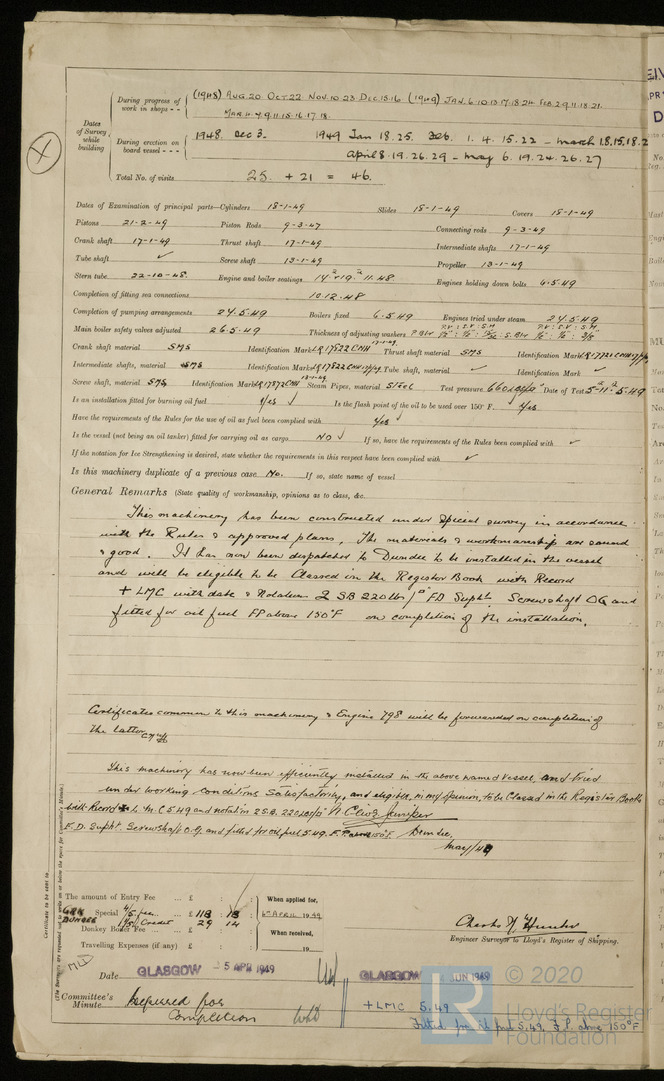 (1948) AUG.20. OCT.22. NOV.10.23 DEC.15.16 (1949) JAN.6.10.13.17.18.24 FEB.2.9.11.18.21.
During progress of work in shops - -
MAR.4.9.11.15.16.17.18.
Dates of Survey while building
During erection on board vessel - - -
1948 Dec 3. 1949 Jan 18.25. Feb. 1.4.15.22 - March 1.8.15.18.2
April 8.19.26.29 - May 6.19.24.26.27
Total No. of visits 25 + 21 = 46.
Dates of Examination of principal parts—Cylinders 18-1-49 Slides 18-1-49 Covers 18-1-49
Pistons 21-2-49 Piston Rods 9-3-47 Connecting rods 9-3-49
Crank shaft 17-1-49 Thrust shaft 17-1-49 Intermediate shafts 17-1-49
Tube shaft ✓ Screw shaft 13-1-49 Propeller 13-1-49
Stern tube 22-10-48 Engine and boiler seatings 11.48 Engines holding down bolts 6.5.49
Completion of fitting sea connections 10.12.48
Completion of pumping arrangements 24.5.49 Boilers fixed 6.5.49 Engines tried under steam 24.5.49
Main boiler safety valves adjusted 26.5.49 Thickness of adjusting washers
Crank shaft material SMS Identification Mark LR17822CMH 17-1-49 Thrust shaft material SMS Identification Mark
Intermediate shafts, material SMS Identification Marks Tube shaft, material ✓ Identification Mark ✓
Screw shaft, material SMS Identification Mark LR17872CMH 13-1-49 Steam Pipes, material Steel Test pressure 660 Date of Test
Is an installation fitted for burning oil fuel Yes ✓ Is the flash point of the oil to be used over 150° F. Yes
Have the requirements of the Rules for the use of oil as fuel been complied with Yes ✓
Is the vessel (not being an oil tanker) fitted for carrying oil as cargo. NO ✓ If so, have the requirements of the Rules been complied with ✓
If the notation for Ice Strengthening is desired, state whether the requirements in this respect have been complied with ✓
Is this machinery duplicate of a previous case No. If so, state name of vessel
General Remarks (State quality of workmanship, opinions as to class, &c.
This machinery has been constructed under special survey in accordance
with the Rules & approved plans. The materials & workmanship are sound
& good. It has now been dispatched to Dundee to be installed in the vessel
and will be eligible to be Classed in the Register Book with Record
+ LMC with date & Notation 2 SB 220 lb/□" FD Supht. Screwshaft OG and
fitted for oil fuel FP above 150°F on completion of the installation.
Certificates common to this machinery & Engine 798 will be forwarded on completion of
the latter
This machinery has now been efficiently installed in the above named vessel, and tried
under working conditions satisfactorily, and eligible, in my opinion, to be Classed in the Register Book
with Record + L.M.C 5.49 and notation 2 S.B. 220 lb/□"
F.D. Supht. Screwshaft O.G. and fitted for oil fuel 5.49. F.P. above 150°F. Dundee,
May/49
Certificate to be sent to
(The Surveyors are requested not to write on or below the space for Committee's Minute.)
The amount of Entry Fee ... £ : :
Special 4/5 fee ... £ 118 : 18 :
GRK
DUNDEE
1/5th Credit
Donkey Boiler Fee ... £ 29 : 14 :
Travelling Expenses (if any) £ : :
When applied for,
6th APRIL 1949
When received,
19
Charles N. Hunter
Engineer Surveyor to Lloyd's Register of Shipping.
Date GLASGOW - 5 APR 1949
GLASGOW JUN 1949
Committee's Minute
Deferred for
Completion
+ LMC 5.49
Fitted for oil fuel 5.49. F.P. above 150°F
© 2020
LR
Lloyd's Register
Foundation